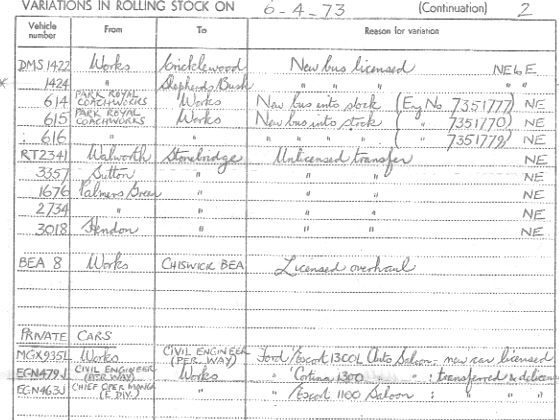 VARIATIONS IN ROLLING STOCK ON 6-4-73 (Continuation) 2
Vehicle number From To Reason for variation
DMS 1422 Works Cricklewood New bus licensed NE & E
* 1424 " Shepherds Bush " " " " "
614 PARK ROYAL COACHWORKS Works New bus into stock (Eng No 7351777) NE
615 PARK ROYAL COACHWORKS Works New bus into stock ( " 7351770) NE
616 " " " " " " ( " 7351779) NE
RT2341 Walworth Stonebridge Unlicensed transfer NE
3357 Sutton " " " NE
1676 Palmers Green " " " NE
2734 " " " " NE
3018 Hendon " " " NE
BEA 8 Works CHISWICK BEA Licensed overhaul
PRIVATE CARS
MGX935L Works CIVIL ENGINEER (PER. WAY) Ford Escort 1300L Auto Saloon - new car licensed
EGN479J CIVIL ENGINEER (PER. WAY) Works " Cortina 1300 " " : transferred & delicen
EGN463J CHIEF OPER MANGR (E. DIV.) " " Escort 1100 Saloon : " " "